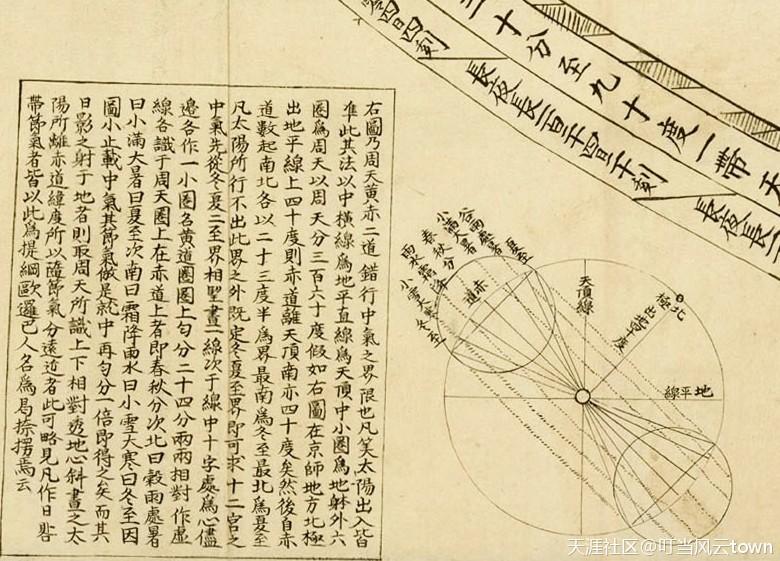 十分至九十度一帶天
四日四刻
長夜長一百
長夜長
右圖乃周天黃赤二道錯行中氣之界限也凡筭太陽出入皆
準此其法以中橫線為地平直線為天頂中小圈為地躰外大
圈為周天以周天分三百六十度假如右圖在京師地方北極
出地平線上四十度則赤道離天頂南亦四十度矣然後自赤
道數起南北各以二十三度半為界最南為冬至最北為夏至
凡太陽所行不出此界之外既定冬夏至界即可求十二宮之
中氣先從冬夏二至界相望畫一線次于線中十字處為心儘
邊各作一小圈名黃道圈圈上勻分二十四分兩兩相對作虛
線各識于周天圈上在赤道上者即春秋分次北曰穀雨處暑
曰小滿大暑曰夏至次南曰霜降雨水曰小雪大寒曰冬至因
圖小止載中氣其節氣倣是就中再勻分一倍即得之矣而其
日影之射于地者則取周天所識上下相對透地心斜畫之太
陽所離赤道緯度所以隨節氣分遠近者此可略見凡作日晷
帶節氣者皆以此為提綱歐邏巴人名為曷捺楞馬云
夏至
谷雨處暑
小滿大暑
春秋分
雨水霜降
小雪大寒
冬至
赤道
天頂線
北極出地四十度
地平線
天涯社区@叮当风云town